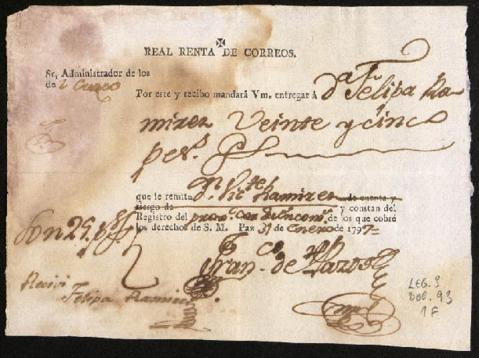 REAL RENTA DE CORREOS.
Sr. Administrador de los
de el Cuzco
Por este y recibo mandará Vm. entregar á Da. Felipa Ra
mirez Veinte y cinco
pes.
que le remite Dn. Ramirez de cuenta y
riesgo de y constan del
Registro del de los que cobré
los derechos de S. M. Paz 31 de Enero de 1797
Son 25 ps.
Fran.co de
Recivi
Felipa Ramirez
LEG. 9
DOC. 93
1F